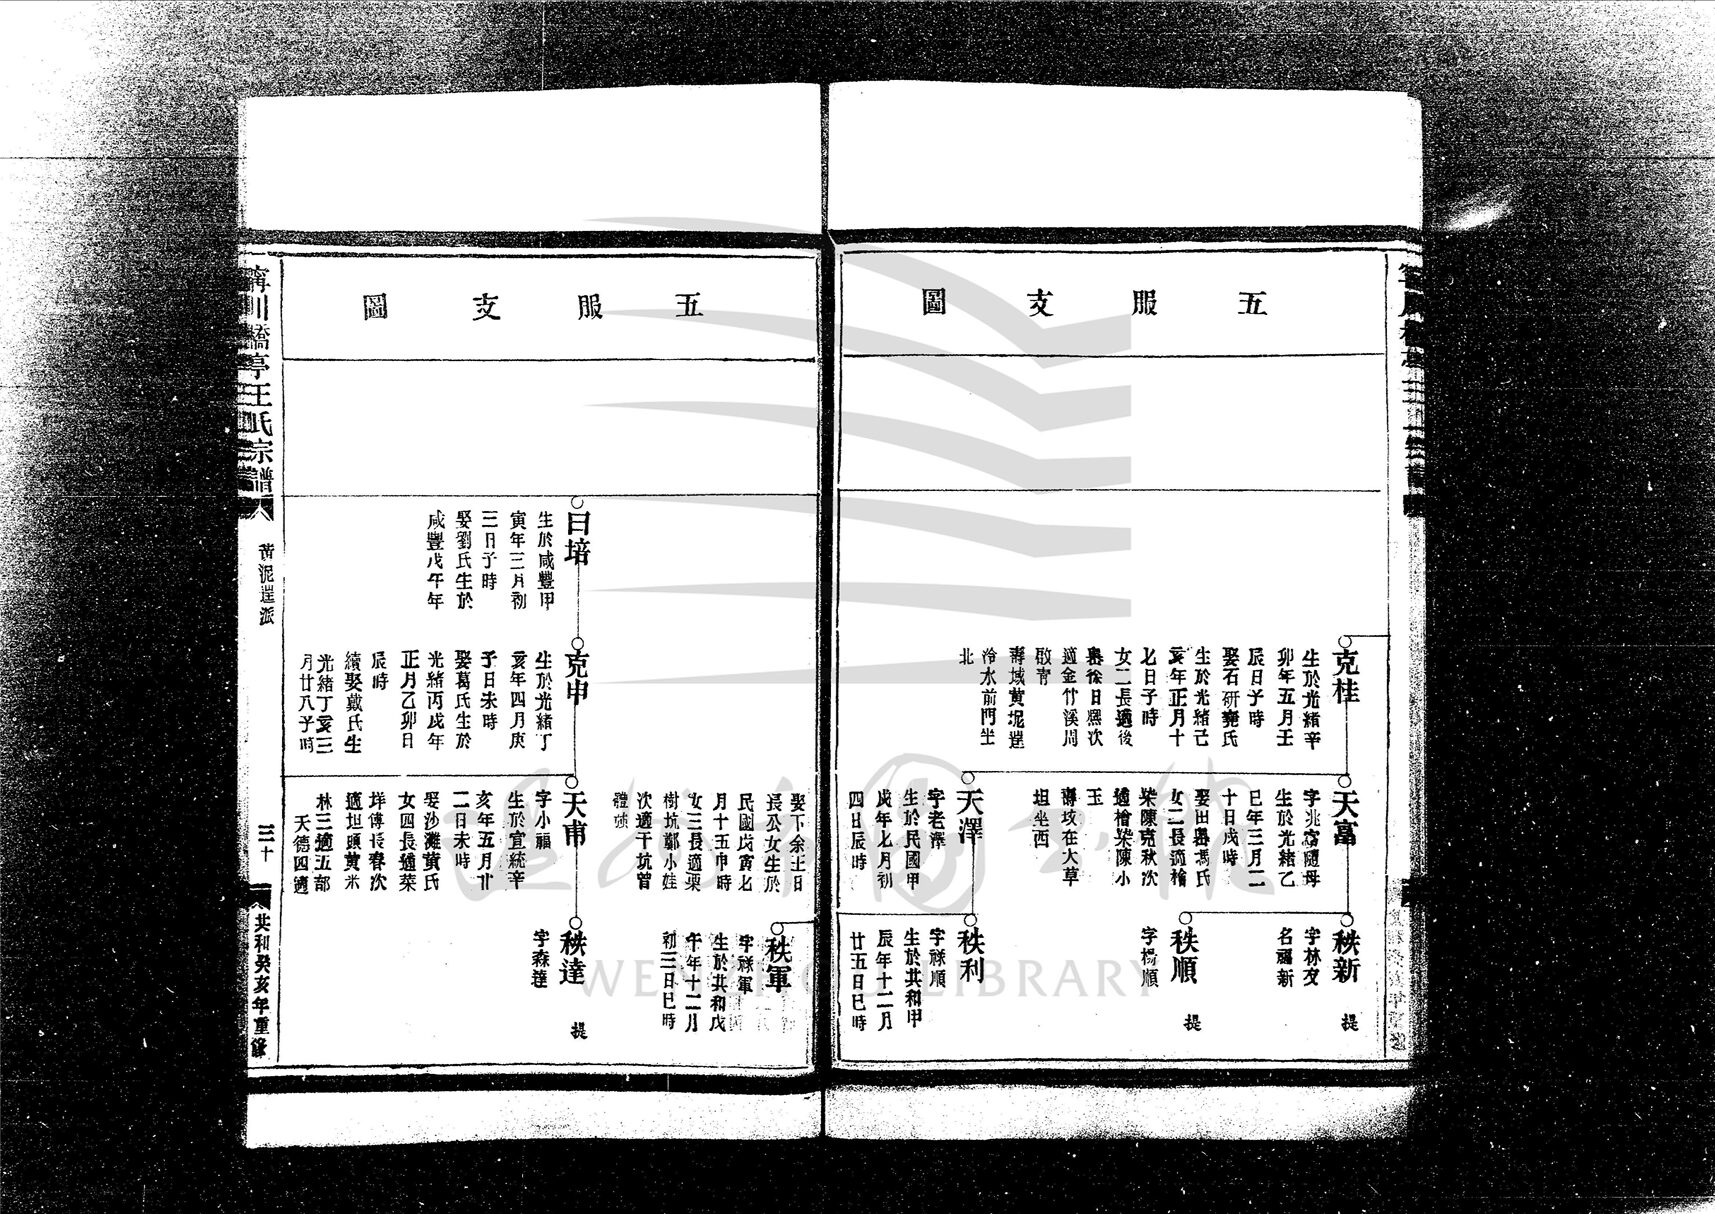 五服支圖
克桂
生於光緒辛
卯年五月壬
辰日子時
娶石研甕氏
生於光緒己
亥年正月十
七日子時
女二長適後
嶴徐日熙次
適金竹溪周
啟青
壽域黄坭塟
冷水前門坐
北
天富
字兆富隨母
生於光緒乙
巳年三月二
十日戌時
娶田嶴馮氏
女二長適檜
柴陳克秋次
適檜柴陳小
玉
壽坟在大草
坦坐西
秩新
字林友
名福新
提
秩順
字楊順
提
天澤
字老澤
生於民國甲
戌年七月初
四日辰時
秩利
字祿順
生於共和甲
辰年十二月
廿五日巳時
五服支圖
娶下余王日
長公女生於
民國戊寅七
月十五申時
女三長適栗
樹坑鄭小娃
次適干坑曾
體強
秩軍
字祿軍
生於共和戊
午年十二月
初三日巳時
日培
生於咸豐甲
寅年三月初
三日子時
娶劉氏生於
咸豐戊午年
克申
生於光緒丁
亥年四月庚
子日未時
娶葛氏生於
光緒丙戌年
正月乙卯日
辰時
續娶戴氏生
光緒丁亥三
月廿八子時
天甫
字小福
生於宣統辛
亥年五月廿
二日未時
娶沙灘黄氏
女四長適葉
垟傅長春次
適坦頭黄米
林三適五部
天德四適
秩達
字森達
提
甯川橋亭王氏宗譜
黄泥塟派
三十
共和癸亥年重修
WENZHOU LIBRARY